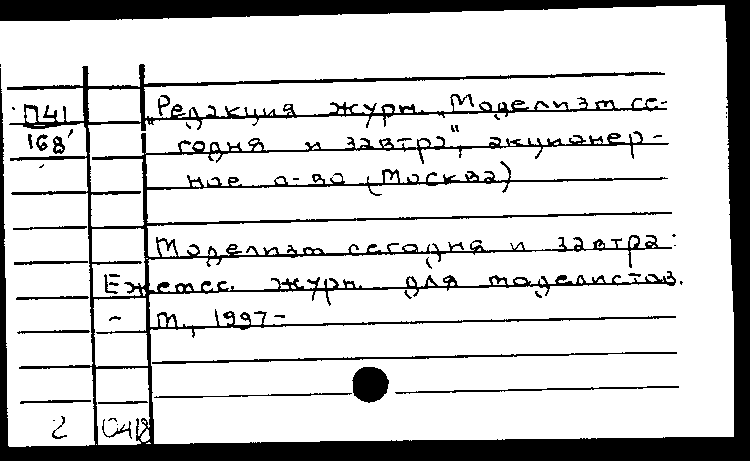 П41
168
„Редакция журн. „Моделизм се-
годня и завтра", акционер-
ное о-во (Москва)
Моделизм сегодня и завтра:
Ежемес. журн. для моделистов.
- М., 1997-
2 0418